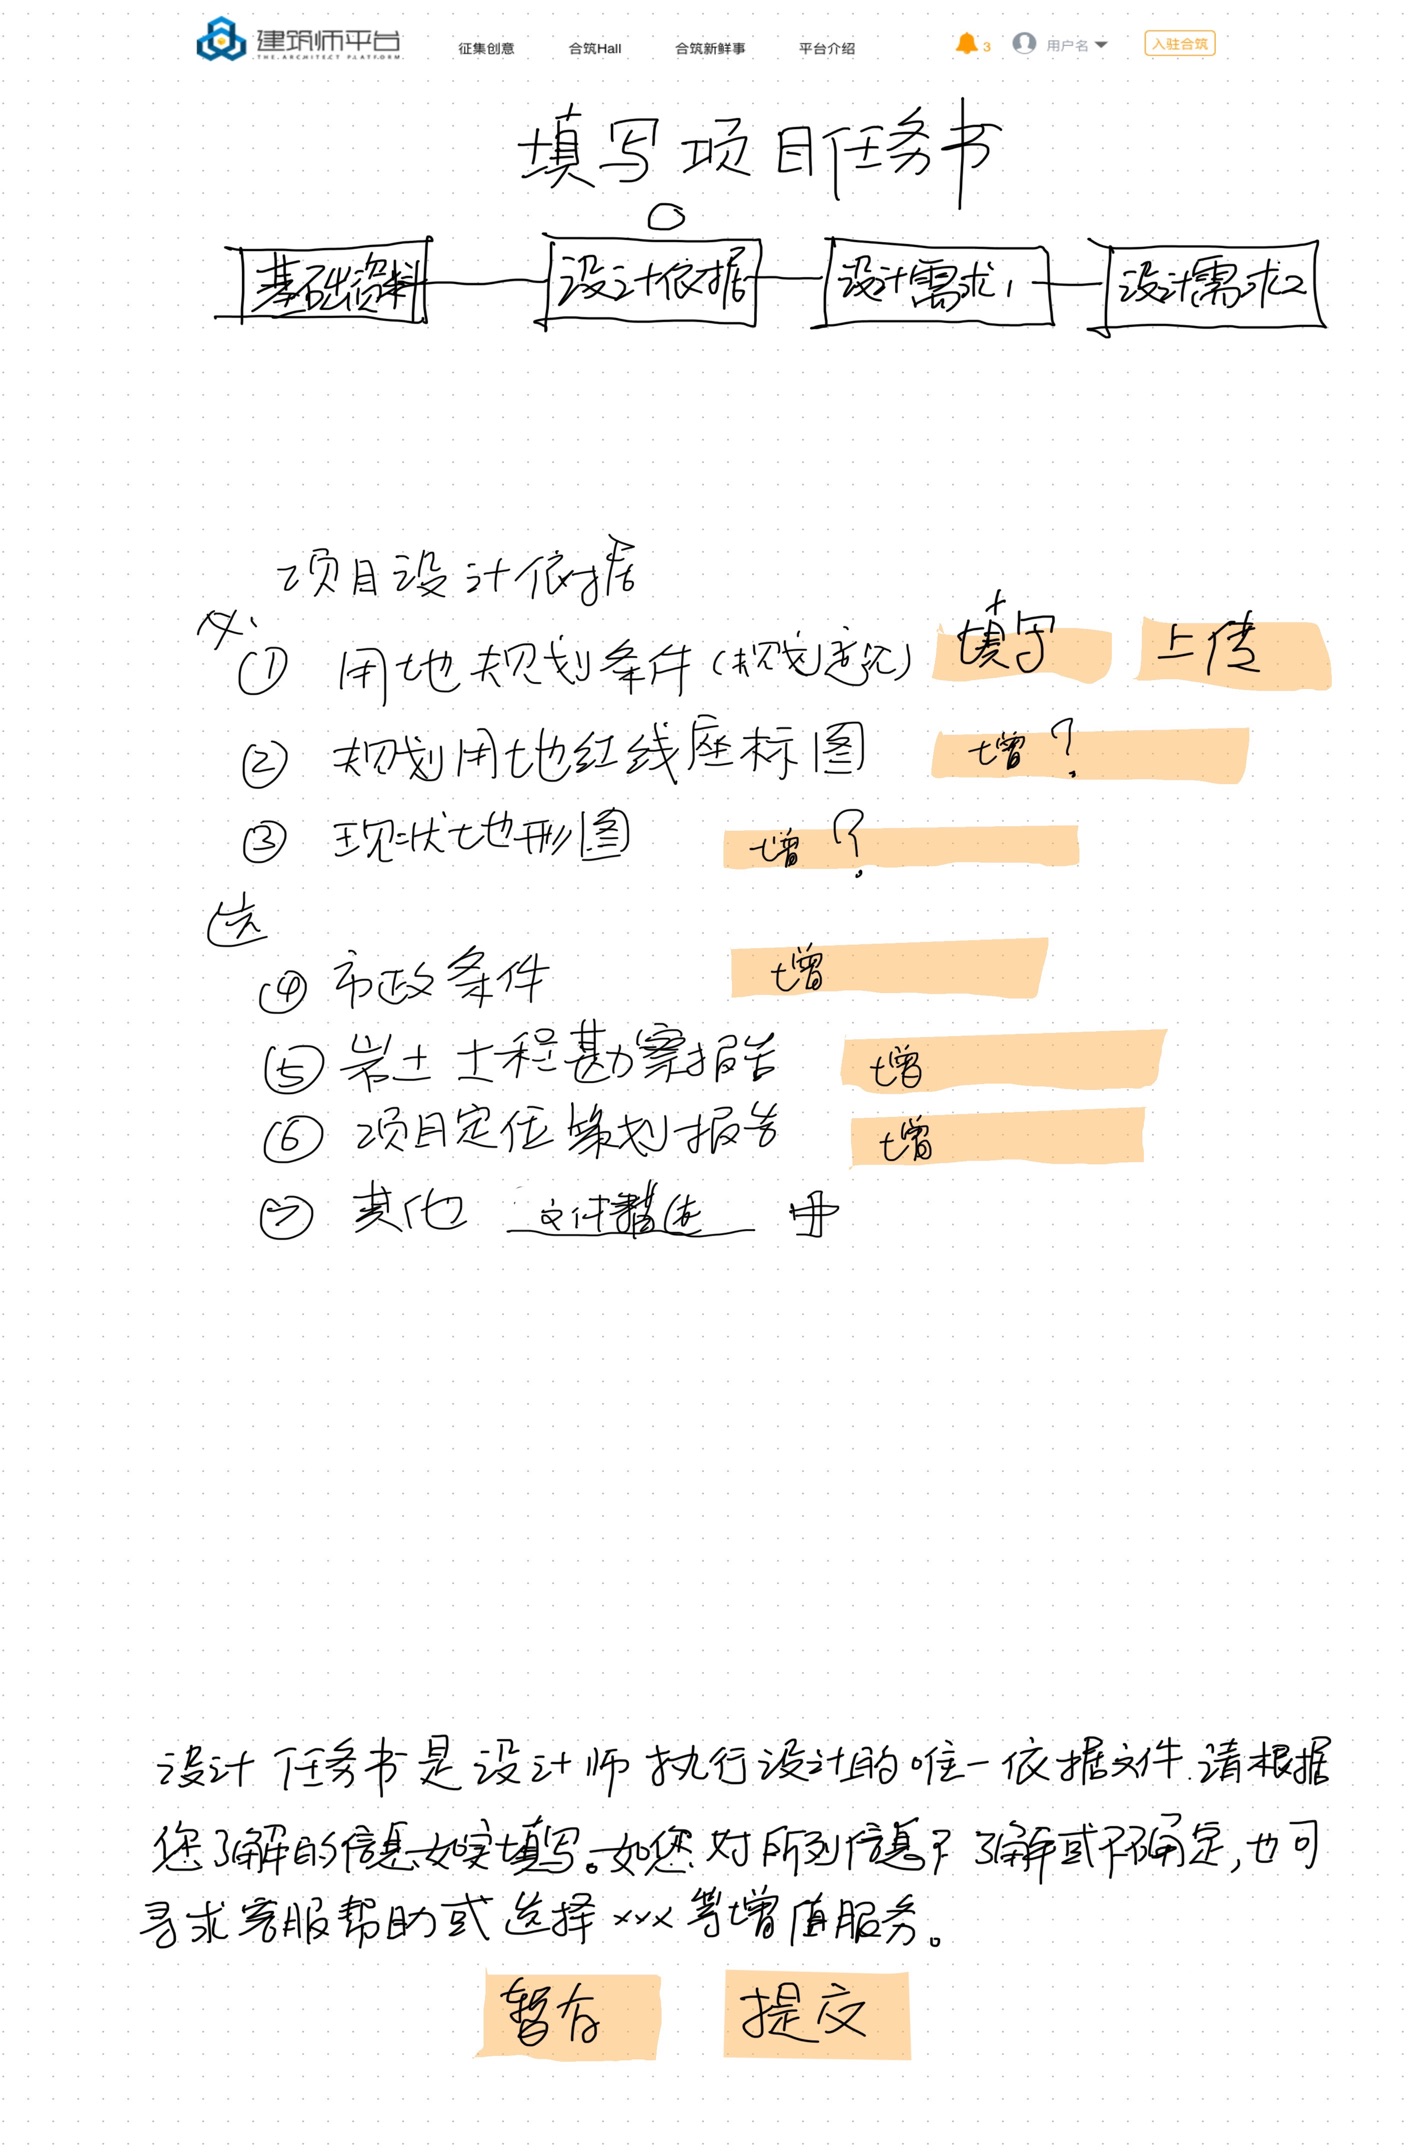 建筑师平台
THE ARCHITECT PLATFORM
征集创意 合筑Hall 合筑新鲜事 平台介绍 3 用户名 入驻合筑
填写项目任务书
基础资料 设计依据 设计需求1 设计需求2
项目设计依据
必
① 用地规划条件(规划意见) 填写 上传
② 规划用地红线座标图 增?
③ 现状地形图 增?
选
④ 市政条件 增
⑤ 岩土工程勘察报告 增
⑥ 项目定位策划报告 增
⑦ 其他 文件描述
设计任务书是设计师执行设计的唯一依据文件.请根据
您了解的信息如实填写。如您对所列信息不了解或不确定,也可
寻求客服帮助或选择xxx等增值服务。
暂存 提交